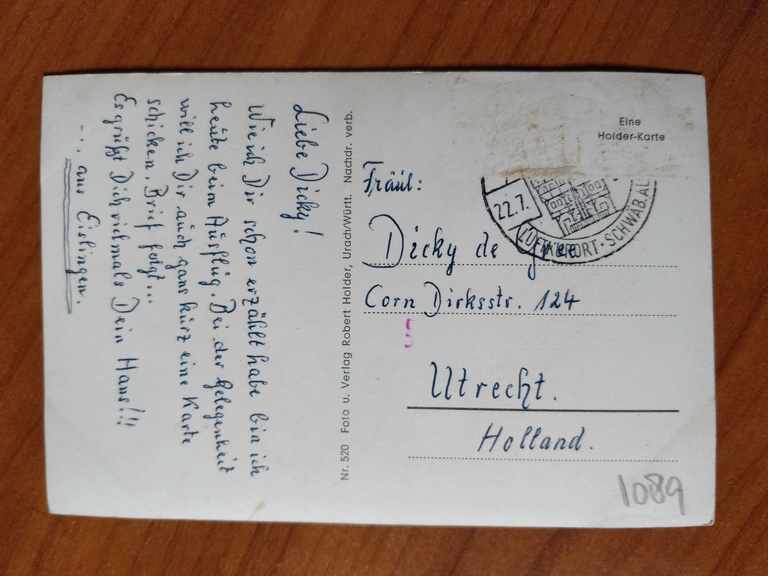 Liebe Dicky!
Wie ich Dir schon erzählt habe bin ich
heute beim Ausflug. Bei der Gelegenheit
will ich Dir auch ganz kurz eine Karte
schicken. Brief folgt...
Es grüßt Dich vielmals Dein Hans!!!
... aus Eislingen.
Nr. 520 Foto u. Verlag Robert Holder, Urach/Württ. Nachdr. verb.
Eine
Holder-Karte
22.7.
LUFTKURORT · SCHWÄB. AL
Fräul:
Dicky de
Corn Dirksstr. 124
5
Utrecht.
Holland.
1089